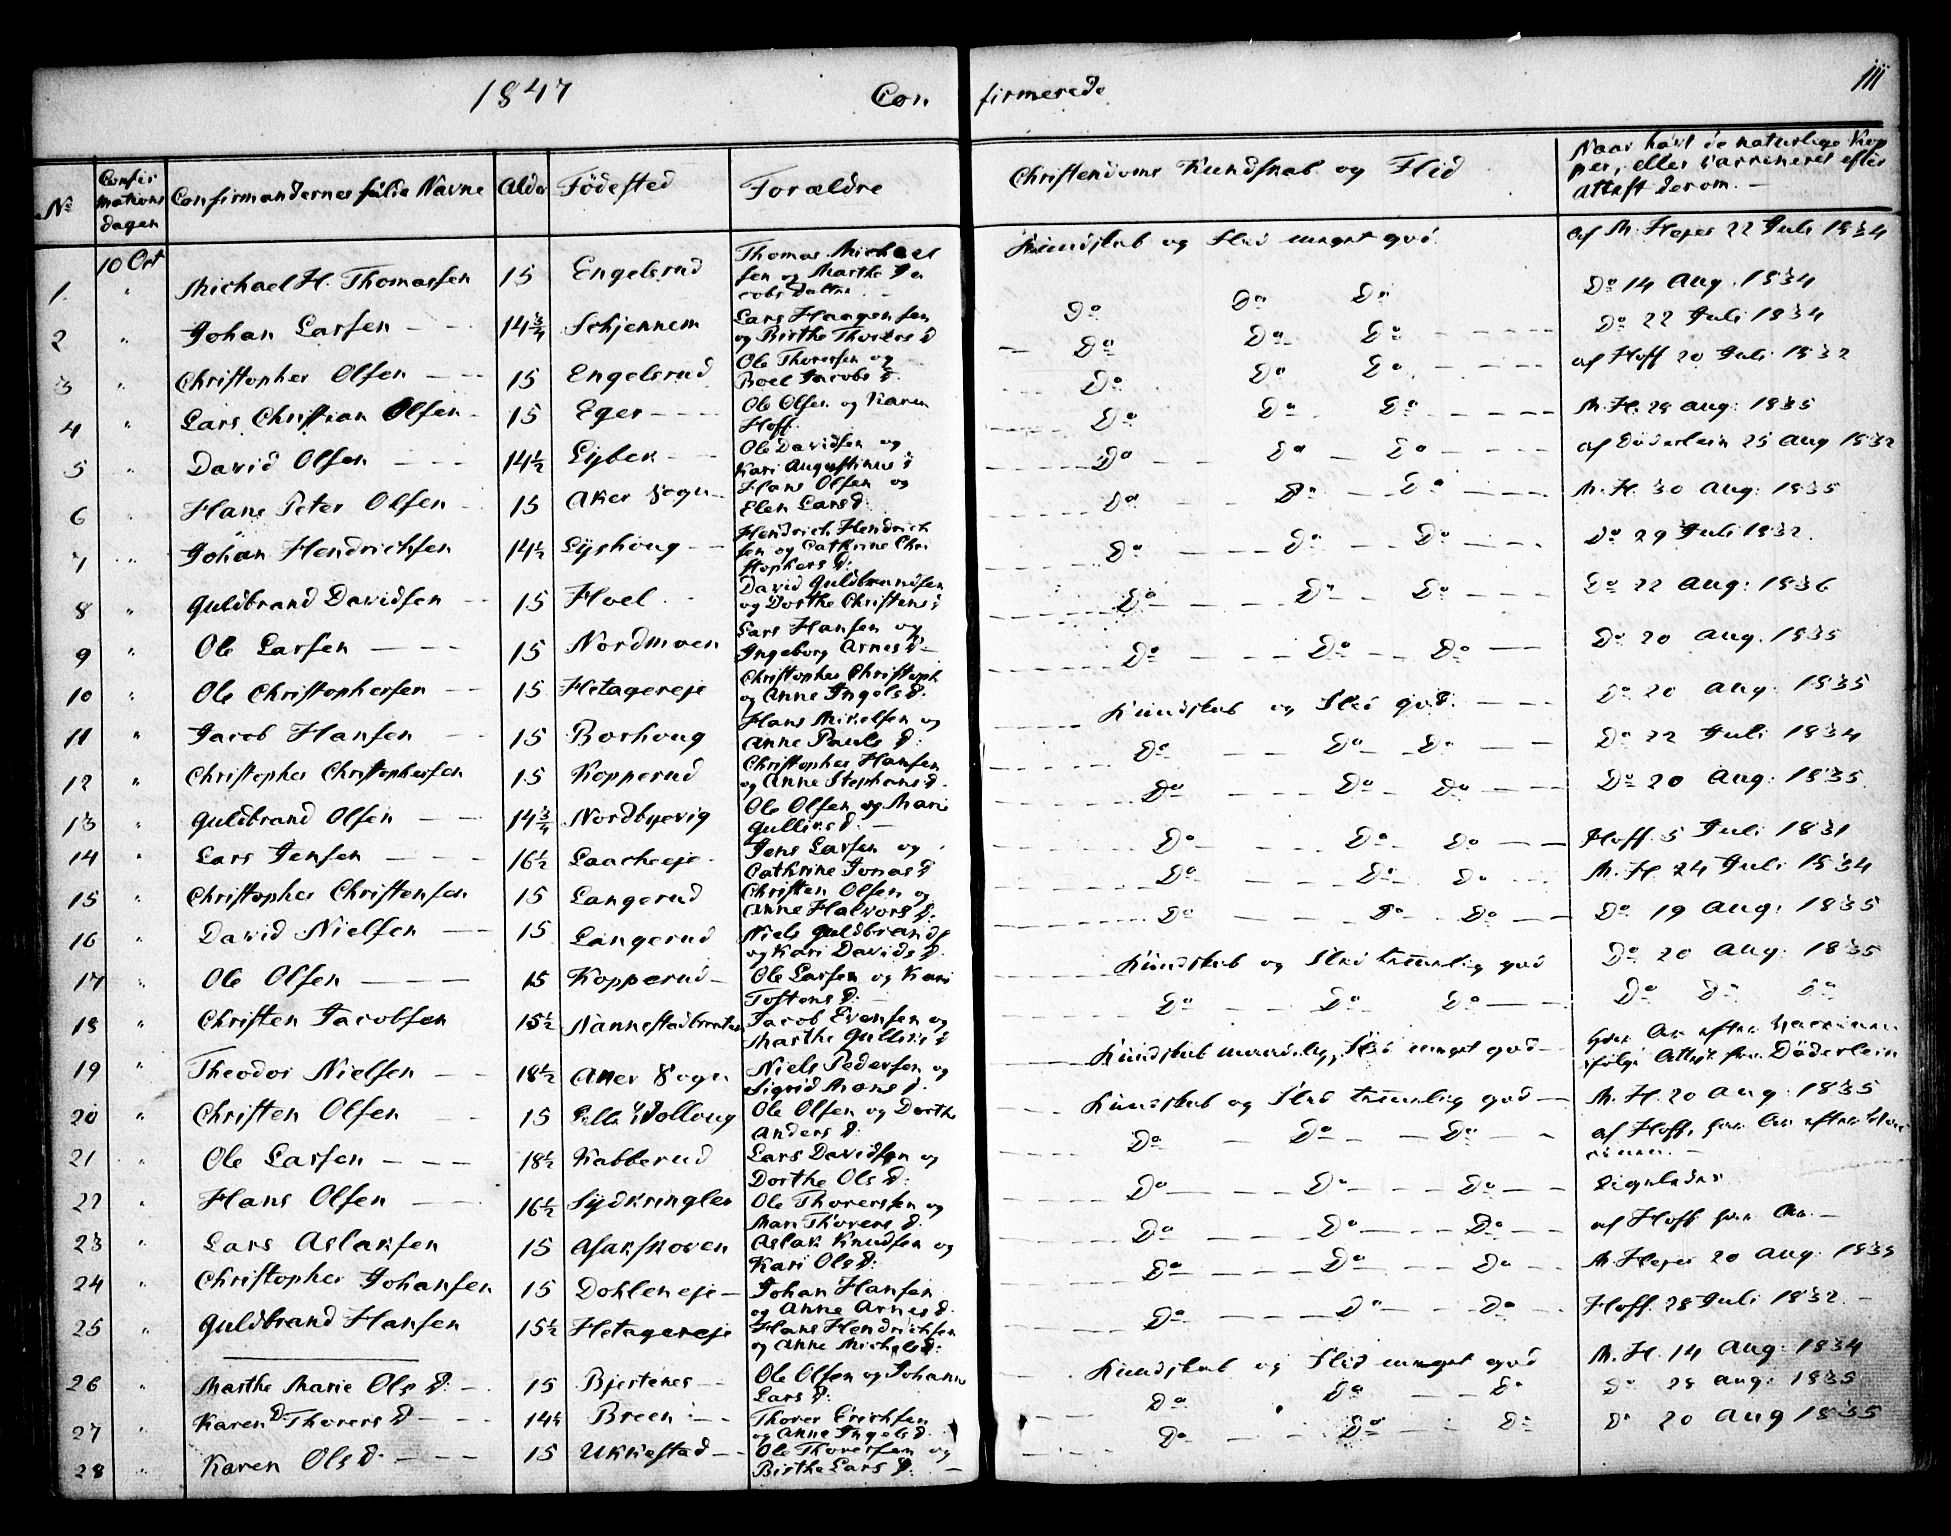 1847 Con firmerede 111
No Confirmations dagen Confirmandernes fulde Navne Alder Fødested Forældre Christendoms Kundskab og Flid Naar havt de naturlige Kopper, eller vaccineret efter Attest derom.
10 Oct
1. " Michael H. Thomassen 15 Engelsrud Thomas Michaelsen og Marthe Jacobs Datter Kundskab og Flid meget god. af M. Heyer 22 Juli 1834
2 " Johan Larsen 14 3/4 Schjennem Lars Haagensen og Birthe Thorers D Do Do Do Do 14 Aug. 1834
3 " Christopher Olsen 15 Engelsrud Ole Thorersen og Boel Jacobs D. Do Do Do Do 22 Juli 1834
4 " Lars Christian Olsen 15 Eger Ole Olsen og Karen Hoff. Do Do Do af Hoff 20 Juli 1832
5 " David Olsen 14 1/2 Lybek Ole Davidsen og Kari Augustinus D Do Do Do M. H. 28 Aug: 1835
6 Hans Peter Olsen 15 Aker Sogn Hans Olsen og Elen Lars D: Do Do Do af Döderlein 25 Aug 1832
7 " Johan Hendrichsen 14 1/2 Lyshoug Hendrich Hendrichsen og Cathrine Christophers D: Do Do Do M. H. 30 Aug: 1835
8 " Guldbrand Davidsen 15 Hoel David Guldbrandsen og Dorthe Christens D Do Do Do Do 29 Juli 1832.
9 " Ole Larsen 15 Nordmoen Lars Hansen og Ingeborg Arnes D Do Do Do Do 22 Aug: 1836
10 " Ole Christophersen 15 Hetagereje Christopher Christoph og Anne Ingels D. Do Do Do Do 20 Aug. 1835
11 " Jacob Hansen 15 Borhoug Hans Mikelsen og Anne Pauls D: Kundskab og Flid god. Do 20 Aug: 1835
12 " Christopher Christophersen 15 Kopperud Christopher Hansen og Anne Stephans D. Do Do Do Do 22 Juli 1834
13 " Guldbrand Olsen 14 3/4 Nordbyevig Ole Olsen og Marie Gullivs D. Do Do Do Do 20 Aug: 1835
14 " Lars Jensen 16 1/2 Laacheeje Jens Larsen og Cathrine Jonas D Do Do Do Hoff. 5 Juli 1831
15 " Christopher Christensen 15 Langerud Christen Olsen og Anne Halvors D: Do Do Do M. H. 24 Juli 1834
16 " David Nielsen 15 Langerud Niels Guldbrands og Kari Davids D. Do Do Do Do 19 Aug: 1835
17 " Ole Olsen 15 Kopperud Ole Larsen og Kari Tostens D: Kundskab og Flid temmelig god Do 20 Aug: 1835
18 " Christen Jacobsen 15 1/2 Nannestadbraaten Jacob Evensen og Marthe Gullivs D Do Do Do Do Do Do
19 " Theodor Nielsen 18 1/2 Aker Sogn Niels Pedersen og Sigrid Mons D. Kundskab maadelig, Flid meget god har Ar efter Vaccinen ifølge Attest fra Döderlein
20 " Christen Olsen 15 Ole Olsen og Dorthe Anders D: Kundskab og Flid temmelig god M. H. 20 Aug: 1835
21 " Ole Larsen 18 1/2 Kabberud Lars Davidsen og Dorthe Ols D: Do Do Do af Hoff, har Ar efter
22 " Hans Olsen 16 1/2 Sydkringler Ole Thorersen og Mari Thorers D. Do Do Do Ligeledes
23 " Lars Aslaksen 15 Asakskoven Aslak Knudsen og Kari Ols D: Do Do Do af Hoff har Ar.
24 " Christopher Johansen 15 Dohleneje Johan Hansen og Anne Arnes D. Do Do Do M. Heyer 20 Aug: 1835
25 " Guldbrand Hansen 15 1/2 Hetagereje Hans Hendrichsen og Anne Michels D: Do Do Do Hoff. 28 Juli 1832.
26 " Marthe Marie Ols D: 15 Bjertenes Ole Olsen og Johanne Lars D: Kundskab og Flid meget god M. H. 14 Aug: 1834
27 " Karen D. Thorers D 14 1/2 Breen Thorer Erichsen og Anne Ingels D. Do Do Do Do 28 Aug: 1835
28 " Karen Ols D. 15 Ukkestad Ole Thorersen og Birthe Lars D: Do Do Do Do 20 Aug 1835